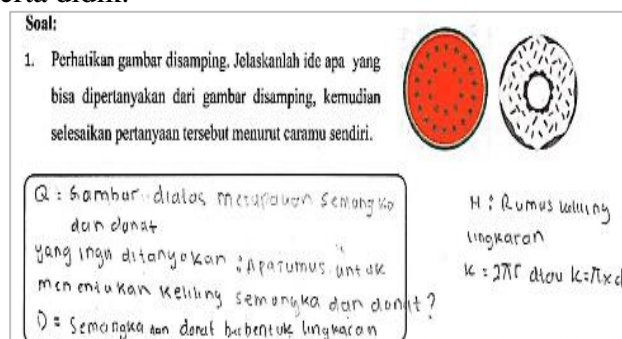 erta didik.
Soal:
1. Perhatikan gambar disamping. Jelaskanlah ide apa yang
bisa dipertanyakan dari gambar disamping, kemudian
selesaikan pertanyaan tersebut menurut caramu sendiri.
Q : Gambar diatas merupakan semangka
dan donat
yang ingin ditanyakan : Apa rumus untuk
menentukan keliling semangka dan donat?
D = Semangka dan donat berbentuk lingkaran
H : Rumus keliling
lingkaran
K = 2πr atau K = π x d